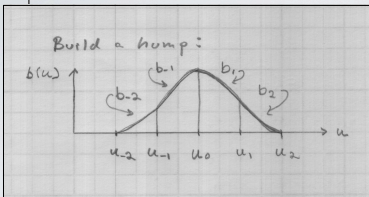 Build a hump:
b(u)
b-1 b1
b-2 b2
u
u-2 u-1 u0 u1 u2